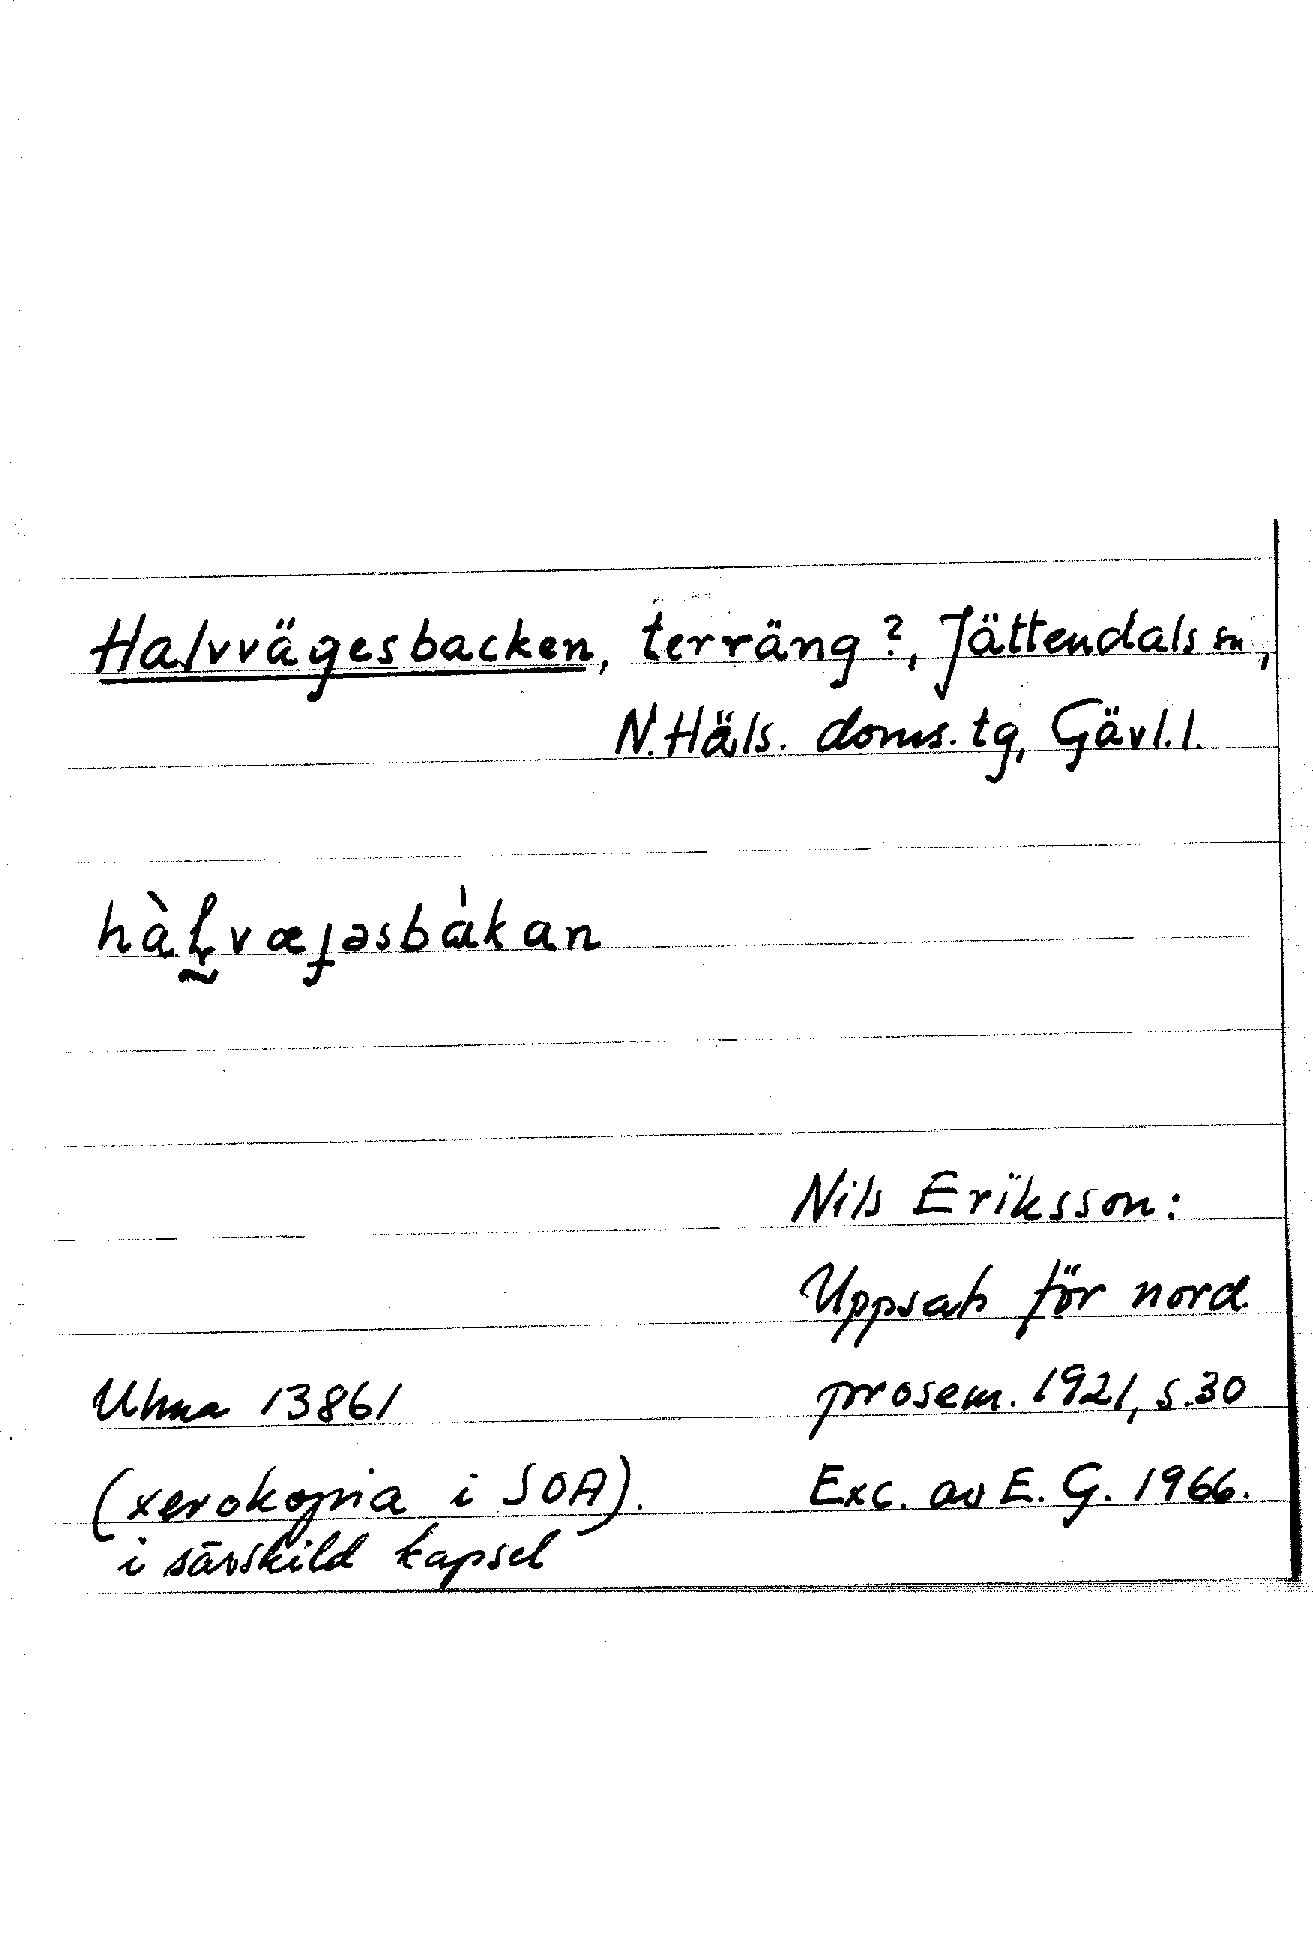 Halvvägesbacken, terräng?, Jättendals sn,
N. Häls. doms. tg, Gävl. l.
hàḷvæɟəsbàkan
Nils Eriksson:
Uppsats för nord.
prosem. 1921, s. 30
Uhma 13861
(xerokopia i SOA).
i särskild kapsel
Exc. av E. G. 1966.